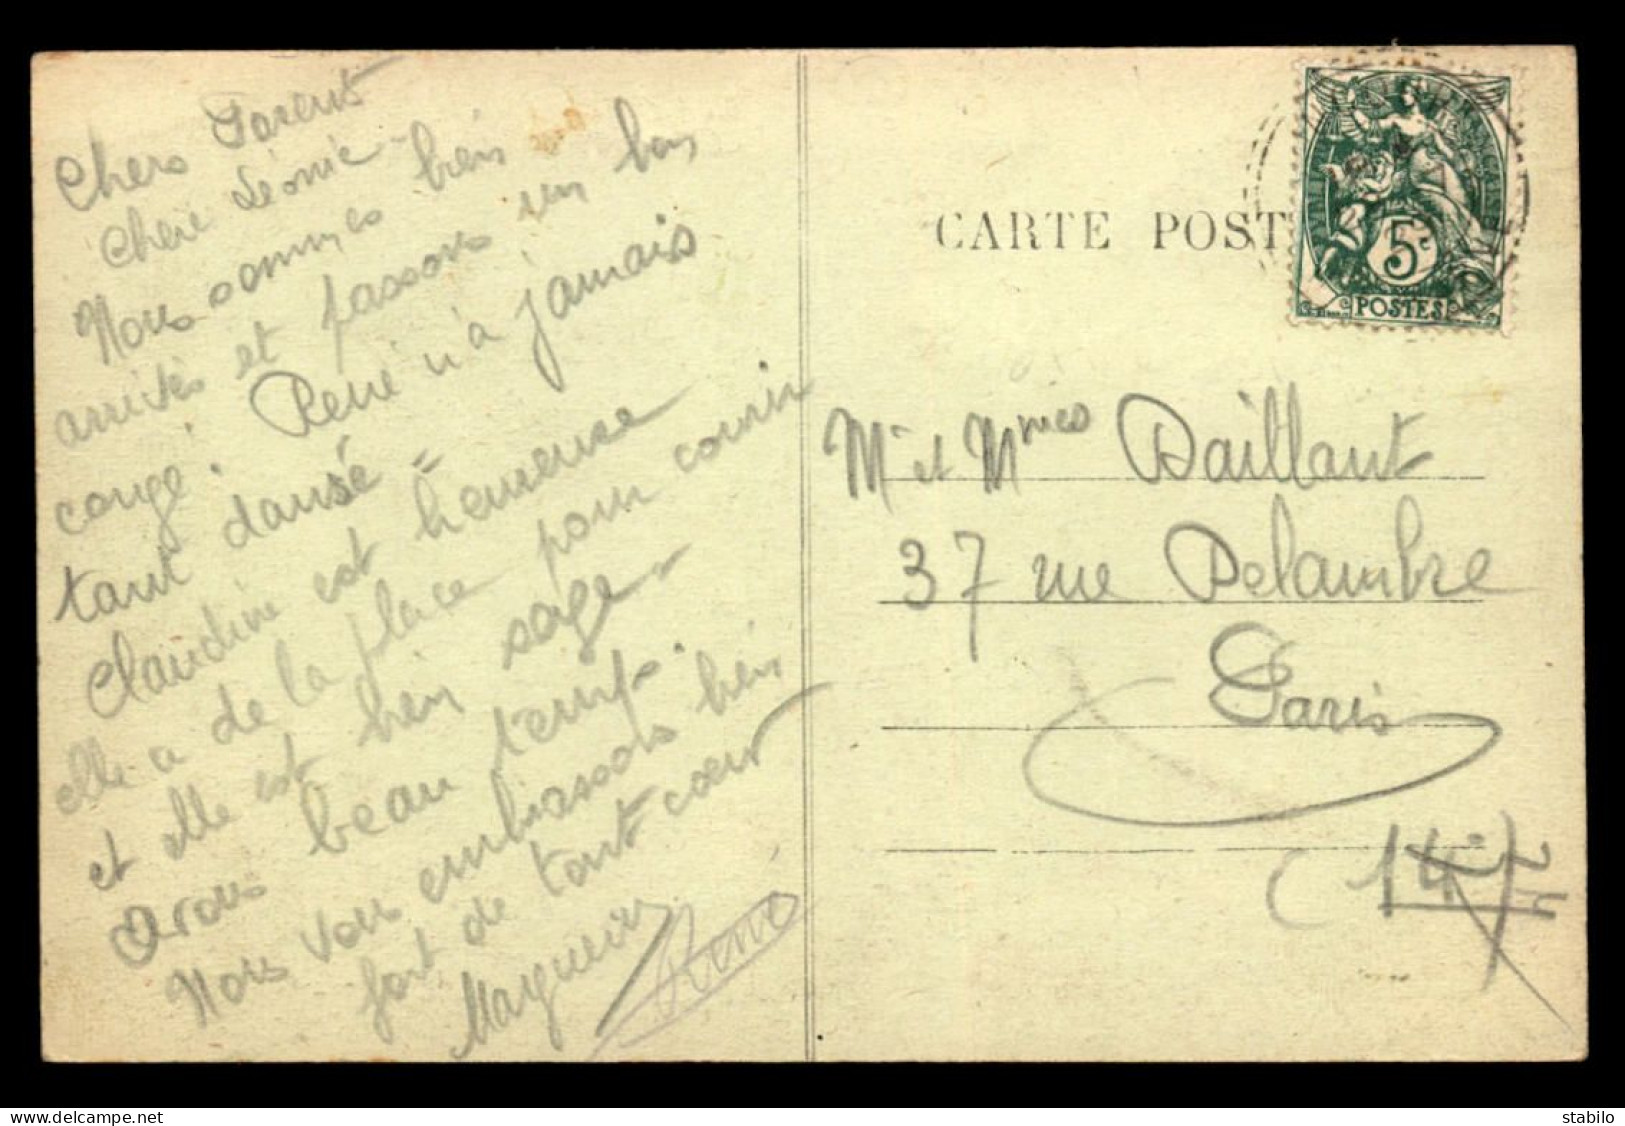 Chers Parents
Chère Léonie -
Nous sommes bien
arrivés et passons un bon
congé. René n'à jamais
tant dansé =
Claudine est heureuse
elle a de la place pour courir
et elle est bien sage -
Avons beau temps.
Nous vous embrassons bien
fort de tout cœur
René
CARTE POST
5c
POSTES
Mr et Mmes Daillant
37 rue Delambre
Paris
14
delcampe.net
stabilo